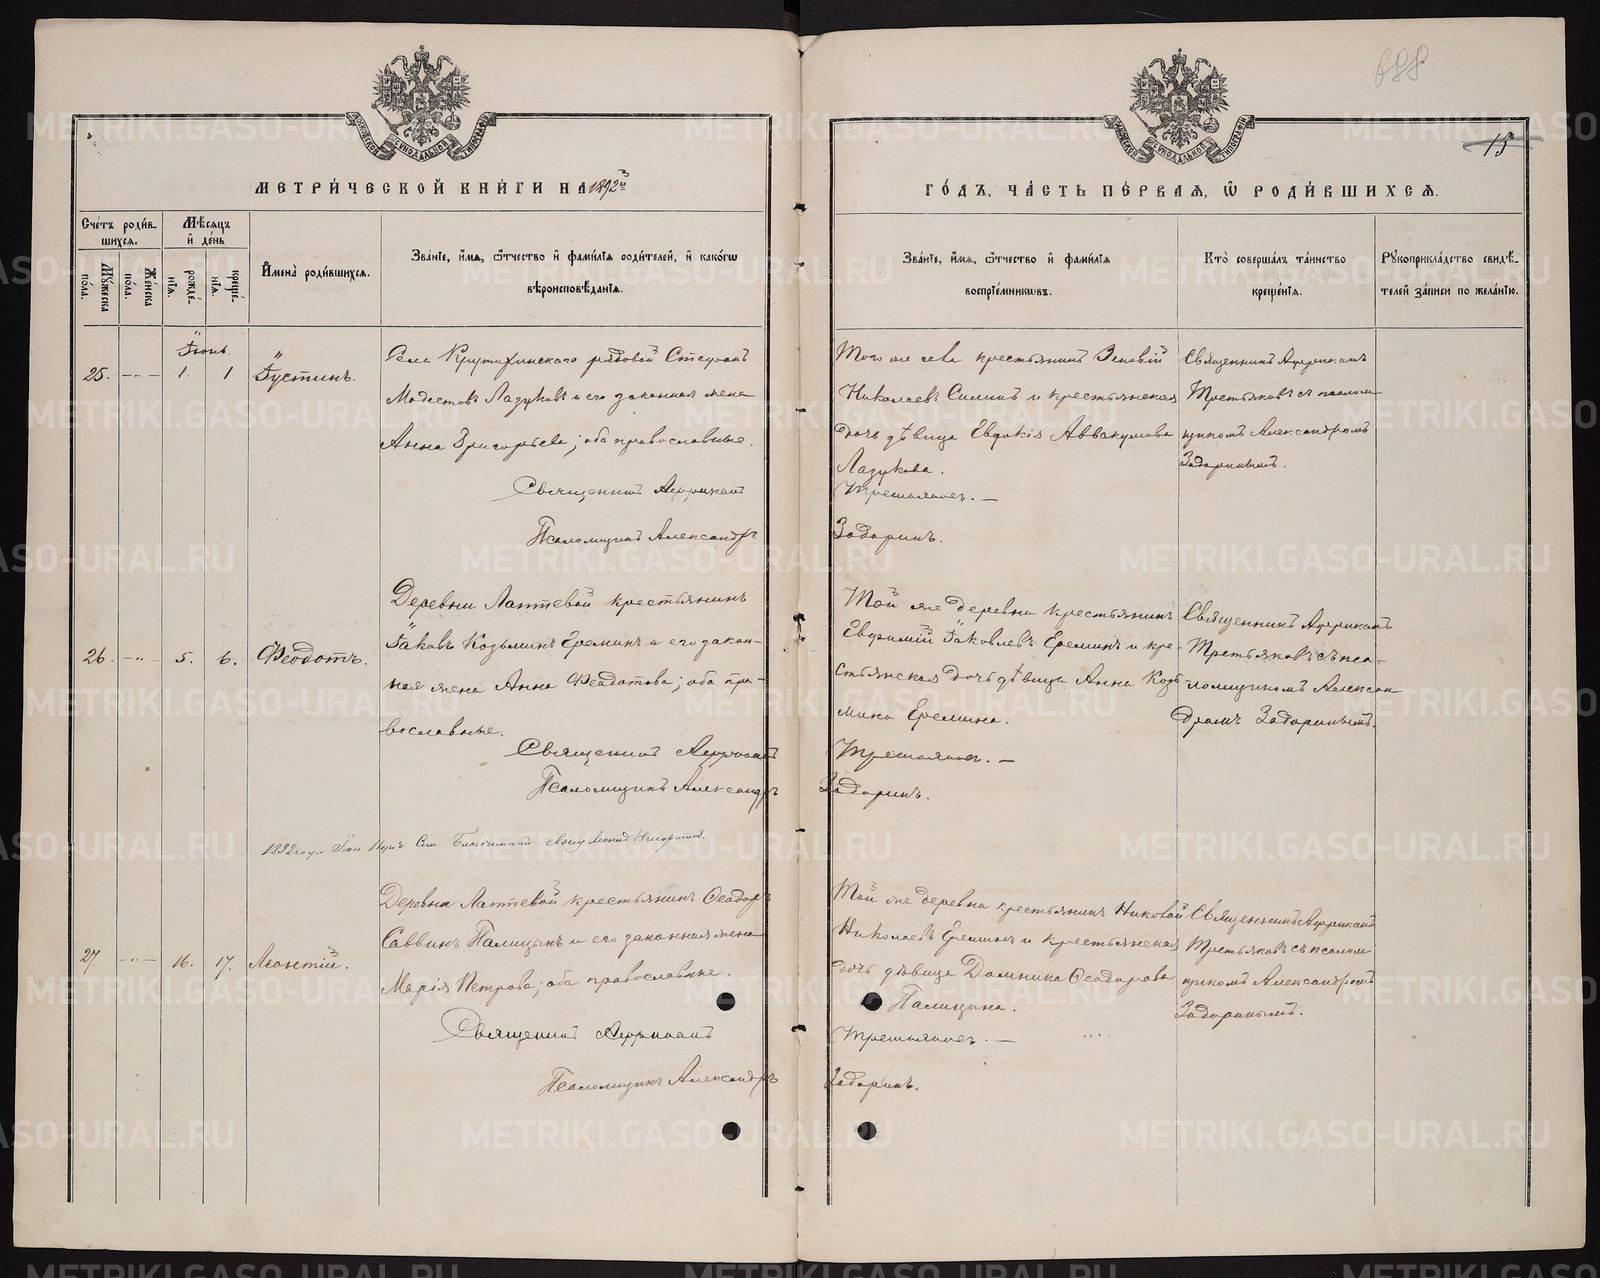 688
15
МОСКОВСКОЙ СѴНОДАЛЬНОЙ ТИПОГРАФІИ
МОСКОВСКОЙ СѴНОДАЛЬНОЙ ТИПОГРАФІИ
МЕТРИ́ЧЕСКОЙ КНИ́ГИ НА 1892й
ГО́ДЪ, ЧА́СТЬ ПЕ́РВАЯ, Ѽ РОДИ́ВШИХСЯ.
Сче́тъ роди́в-
шихся.
Мѣ́сяцъ
и҆ де́нь
Мꙋ́жеска
по́ла.
Же́нска
по́ла.
рожде́-
нїя.
креще́-
нїя.
И҆мена̀ роди́вшихся.
Зва́нїе, и҆́мя, ѻ҆́тчество и҆ фами́лїя роди́телей, и҆ како́гѡ
вѣроисповѣ́данїя.
Зва́нїе, и҆́мя, ѻ҆́тчество и҆ фами́лїя
воспрїе́мникѡвъ.
Кто̀ соверша́лъ та́инство
креще́нїя.
Рꙋкоприкла́дство свидѣ́-
телей за́писи по жела́нїю.
Іюнь.
25. — " — 1. 1. Іустинъ.
Села Крутихинскаго рядовой Стефанъ
Модестовъ Лазуковъ и его законная жена
Анна Григорьева; оба православные.
Священникъ Африканъ
Псаломщикъ Александръ
Того же села крестьянинъ Зиновій
Николаевъ Симинъ и крестьянская
дочь дѣвица Евдокія Аввакумова
Лазукова.
Третьяковъ. —
Задоринъ.
Священникъ Африканъ
Третьяковъ съ псалом-
щикомъ Александромъ
Задоринымъ.
26. — " — 5. 6. Ѳеодотъ.
Деревни Лаптевой крестьянинъ
Іаковъ Козьминъ Ереминъ и его закон-
ная жена Анна Ѳеодотова; оба пра-
вославные.
Священникъ Африканъ
Псаломщикъ Александръ
Той же деревни крестьянинъ
Евфимій Іаковлевъ Ереминъ и кре-
стьянская дочь дѣвица Анна Козь
мина Еремина.
Третьяковъ. —
Задоринъ.
Священникъ Африканъ
Третьяковъ съ пса-
ломщикомъ Алексан
дромъ Задоринымъ.
1892 года Благочинный
27. — " — 16. 17. Леонтій.
Деревни Лаптевой крестьянинъ Ѳеодоръ
Саввинъ Палицынъ и его законная жена
Марія Петрова; оба православные.
Священникъ Африканъ
Псаломщикъ Александръ
Той же деревни крестьянинъ
Николаевъ Ереминъ и крестьянская
дочь дѣвица Домника Ѳеодорова
Палицына.
Третьяковъ. —
Задоринъ.
Священникъ Африканъ
Третьяковъ съ псалом
щикомъ Александромъ
Задоринымъ.
METRIKI.GASO-URAL.RU